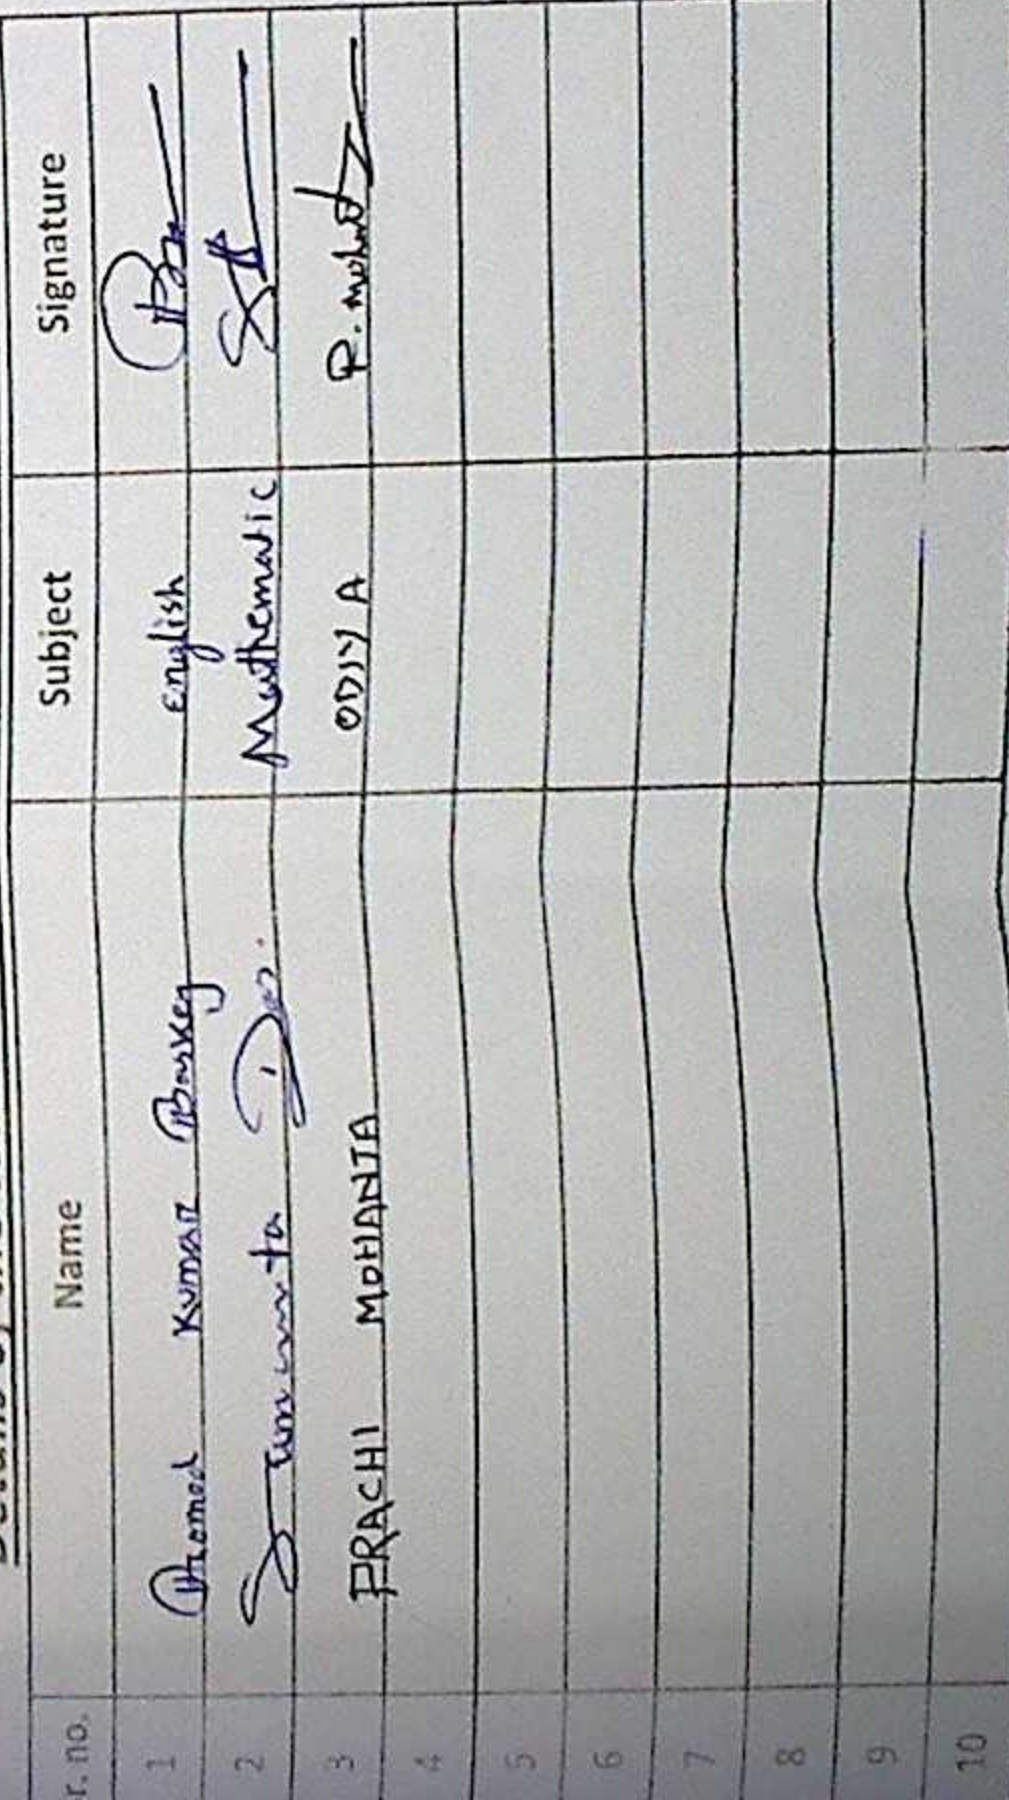 r. no. Name Subject Signature
1 Pramod Kumar Baskey English
2 Das. Mathematic
3 PRACHI MOHANTA ODIYA P. Mohanta
4
5
6
7
8
9
10